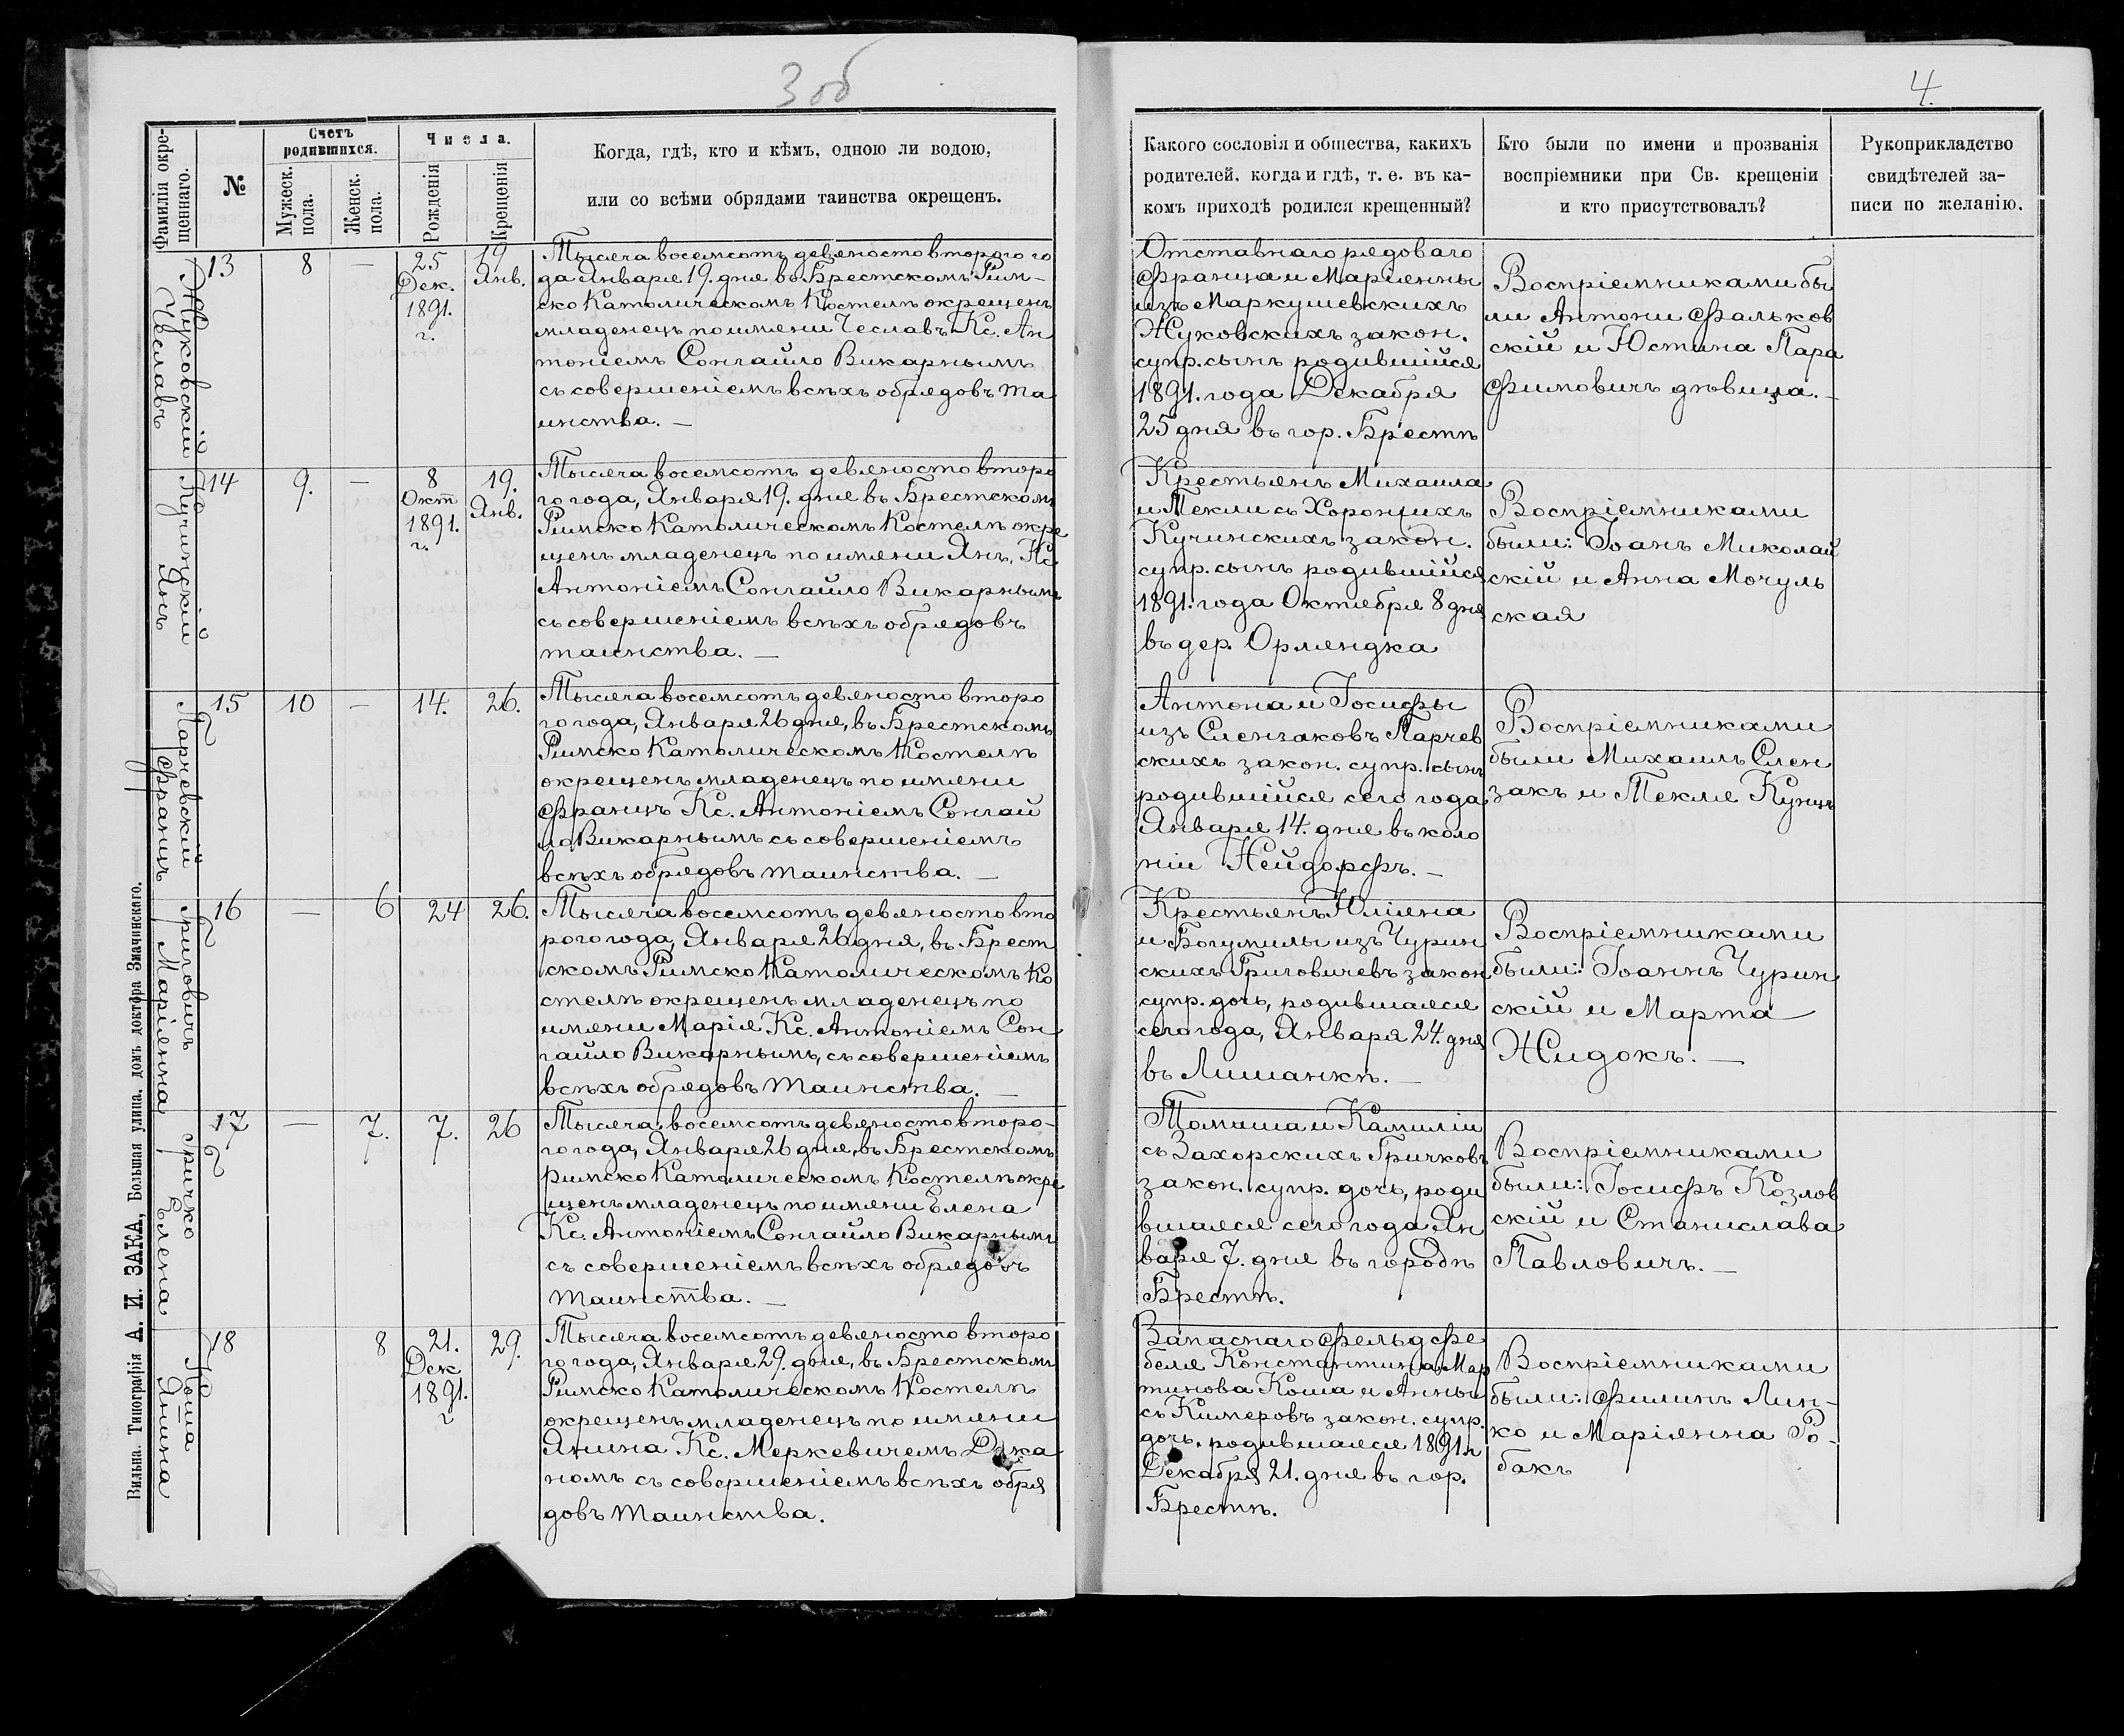 3 об
4.
Фамилія окре-
щеннаго.
№
Счетъ
родившихся.
Мужеск.
пола.
Женск.
пола.
Числа.
Рожденія
Крещенія
Когда, гдѣ, кто и кѣмъ, одною ли водою,
или со всѣми обрядами таинства окрещенъ.
Какого сословія и общества, какихъ
родителей, когда и гдѣ, т. е. въ ка-
комъ приходѣ родился крещенный?
Кто были по имени и прозванія
воспріемники при Св. крещеніи
и кто присутствовалъ?
Рукоприкладство
свидѣтелей за-
писи по желанію.
Жуковскій
Чеславъ
13
8
—
25
Дек.
1891.
г.
19
Янв.
Тысяча восемсотъ девяносто второго го
да Января 19. дня въ Брестскомъ Рим-
ско Католическомъ Костелѣ окрещенъ
младенецъ по имени Чеславъ Кс. Ан
тоніемъ Сонгайло Викарнымъ
съ совершеніемъ всѣхъ обрядовъ та
инства. —
Отставнаго рядоваго
Франца и Маріянны
изъ Маркушевскихъ
Жуковскихъ закон.
супр. сынъ родившійся
1891. года Декабря
25 дня въ гор. Брестѣ
Воспріемниками бы
ли Антони Фальков
скій и Юстина Пара
Фимовичъ дѣвица. —
Кучинскій
Янъ
14
9.
—
8
Окт
1891.
г.
19.
Янв.
Тысяча восемсотъ девяносто второ
го года, Января 19. дня въ Брестскомъ
Римско Католическомъ Костелѣ окре
щенъ младенецъ по имени Янъ, Кс.
Антоніемъ Сонгайло Викарнымъ
съ совершеніемъ всѣхъ обрядовъ
таинства. —
Крестьянъ Михаила
и Текли съ Хоронжихъ
Кучинскихъ закон.
супр. сынъ родившійся
1891. года Октября 8 дня
въ дер. Орлянджа
Воспріемниками
были: Іоанъ Миколай
скій и Анна Мочуль
ская
Парчевскій
Францъ
15
10
—
14.
26.
Тысяча восемсотъ девяносто второ
го года, Января 26 дня, въ Брестскомъ
Римско Католическомъ Костелѣ
окрещенъ младенецъ по имени
Францъ Кс. Антоніемъ Сонгай
ло Викарнымъ съ совершеніемъ
всѣхъ обрядовъ таинства. —
Антона и Іосифы
изъ Слензаковъ Парчев
скихъ закон. супр. сынъ
родившійся сего года
Января 14. дня въ коло
ніи Нейдорфъ. —
Воспріемниками
были Михаилъ Слен
закъ и Текля Кунцъ
Григовичъ
Маріянна
16
—
6
24
26.
Тысяча восемсотъ девяносто вто
рого года, Января 26 дня, въ Брест
скомъ Римско Католическомъ Ко
стелѣ окрещенъ младенецъ по
имени Марія Кс. Антоніемъ Сон
гайло Викарнымъ, съ совершеніемъ
всѣхъ обрядовъ таинства. —
Крестьянъ Юліяна
и Богумилы изъ Чурин
скихъ Григовичевъ закон
супр. дочь, родившаяся
сего года, Января 24. дня
въ Лишанкѣ. —
Воспріемниками
были: Іоаннъ Чурин
скій и Марта
Жидокъ. —
Гричко
Елена
17
—
7.
7.
26
Тысяча восемсотъ девяносто второ-
го года, Января 26 дня, въ Брестскомъ
Римско Католическомъ Костелѣ окре
щенъ младенецъ по имени Елена
Кс. Антоніемъ Сонгайло Викарнымъ
съ совершеніемъ всѣхъ обрядовъ
таинства. —
Томаша и Камиліи
съ Захорскихъ Гричковъ
закон. супр. дочь, роди
вшаяся сего года Ян
варя 7. дня въ городѣ
Брестѣ.
Воспріемниками
были: Іосифъ Козлов
скій и Станислава
Павловичъ. —
Коша
Янина
18
8
21.
Дек
1891.
г
29.
Тысяча восемсотъ девяносто второ
го года, Января 29. дня, въ Брестскомъ
Римско Католическомъ Костелѣ
окрещенъ младенецъ по имени
Янина Кс. Меркевичемъ Дека
номъ съ совершеніемъ всѣхъ обря
довъ таинства.
Запаснаго Фельдфе
беля Константина Мар
тинова Коша и Анны
съ Кимеровъ закон. супр.
дочь, родившаяся 1891 г
Декабря 21. дня въ гор.
Брестѣ.
Воспріемниками
были: Филипъ Лин-
ко и Маріянна Ро-
бакъ
Вильна. Типографія А. И. ЗАКА, Большая улица, домъ доктора Змачинскаго.